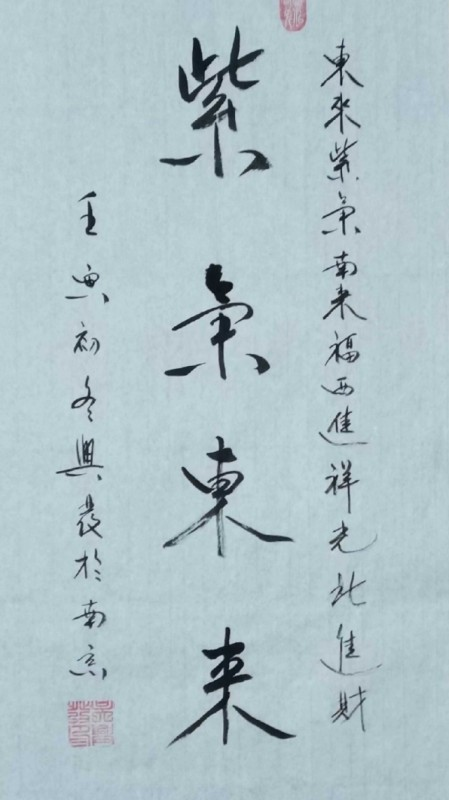 東來紫氣南来福西進祥光北進財
紫氣東来
壬寅初冬興晨於南京